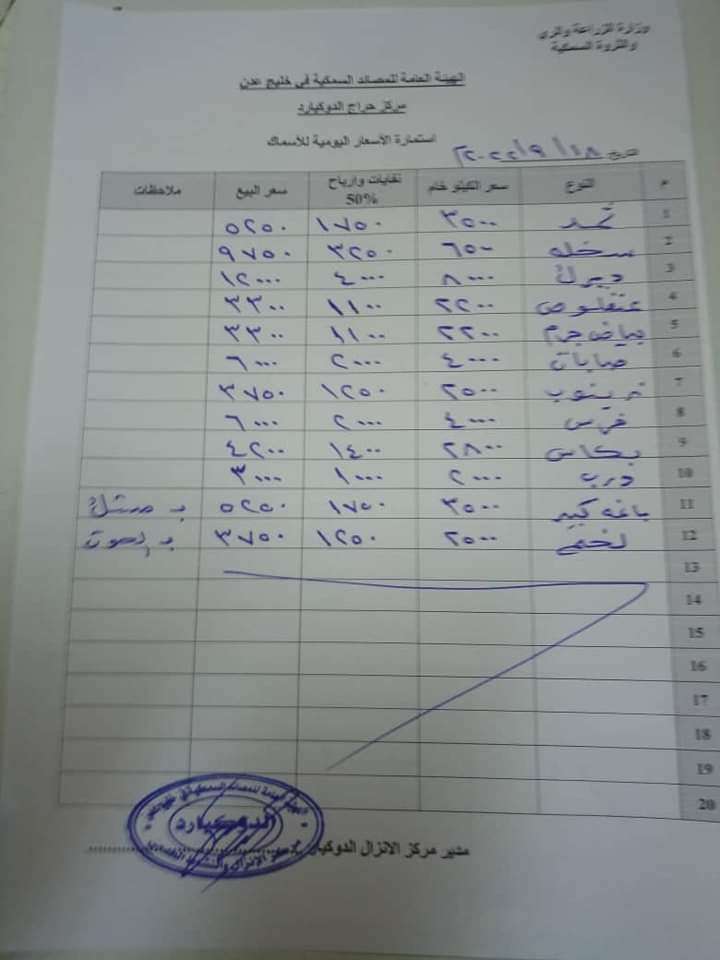 وزارة الزراعة والري
والثروة السمكية
الهيئة العامة للمصائد السمكية في خليج عدن
مركز حراج الدوكيارد
استمارة الأسعار اليومية للأسماك
التاريخ ١٨/٩/٢٠٢٢
م النوع سعر الكيلو خام نفايات وارباح 50% سعر البيع ملاحظات
1 ثمد ٣٥٠٠ ١٧٥٠ ٥٢٥٠
2 سخله ٦٥٠٠ ٣٢٥٠ ٩٧٥٠
3 ديرك ٨٠٠٠ ٤٠٠٠ ١٢٠٠٠
4 عنفلوص ٢٢٠٠ ١١٠٠ ٣٣٠٠
5 بياض جرم ٢٢٠٠ ١١٠٠ ٣٣٠٠
6 ٤٠٠٠ ٢٠٠٠ ٦٠٠٠
7 زينوب ٢٥٠٠ ١٢٥٠ ٣٧٥٠
8 ٤٠٠٠ ٢٠٠٠ ٦٠٠٠
9 بكاس ٢٨٠٠ ١٤٠٠ ٤٢٠٠
10 درب ٢٠٠٠ ١٠٠٠ ٣٠٠٠
11 باغه كبير ٣٥٠٠ ١٧٥٠ ٥٢٥٠
12 لخم ٢٥٠٠ ١٢٥٠ ٣٧٥٠
13
14
15
16
17
18
19
20
مدير مركز الانزال الدوكيارد
الدوكيارد